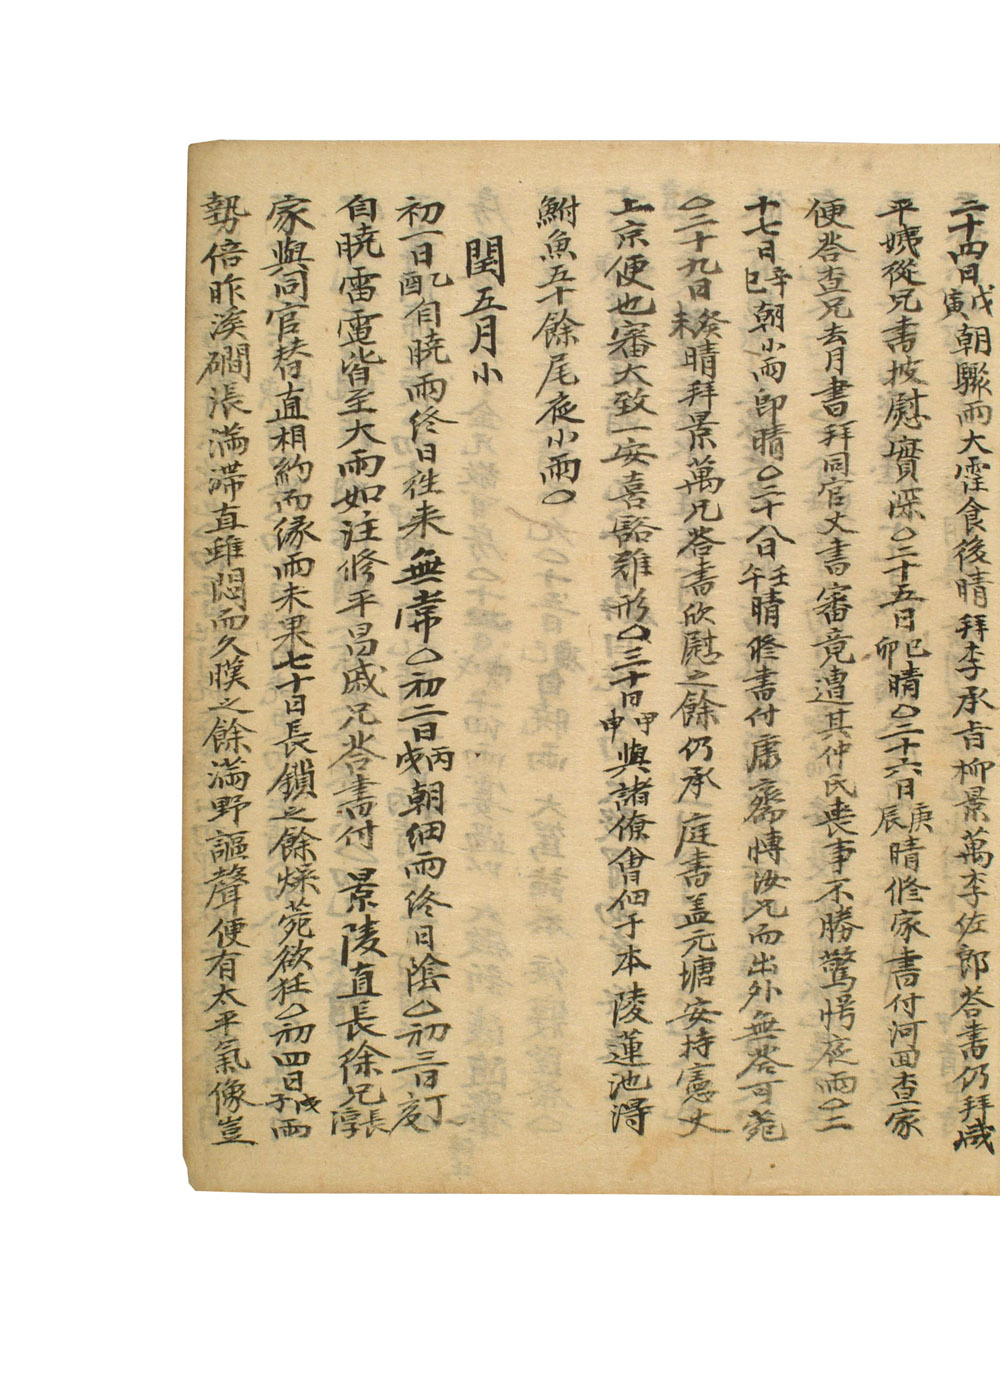 二十四日戊寅朝驟雨大霔食後晴拜李承旨柳景萬李佐郎答書仍拜咸
平姨從兄書披慰實深○二十五日己卯晴○二十六日庚辰晴修家書付河回查家
便答查兄去月書拜同官丈書審竟遭其仲氏喪事不勝驚愕夜雨○二
十七日辛巳朝小雨即晴○二十八日壬午晴修書付庸齋博汝兄而出外無答可菀
○二十九日癸未晴拜景萬兄答書欣慰之餘仍承 庭書盖元塘安持憲丈
上京便也審大致一安喜豁難形○三十日甲申與諸僚會佃于本陵蓮池得
鮒魚五十餘尾夜小雨○
閏五月小
初一日乙酉自曉雨終日徃来無常○初二日丙戌朝細雨終日陰○初三日丁亥
自曉雷電皆至大雨如注修平昌戚兄答書付 景陵直長徐兄長淳
家與同官替直相約而緣雨未果七十日長鎖之餘燥菀欲狂○初四日戊子雨
勢倍昨溪磵漲滿滯直雖悶而久暵之餘滿野謳聲便有太平氣像豈